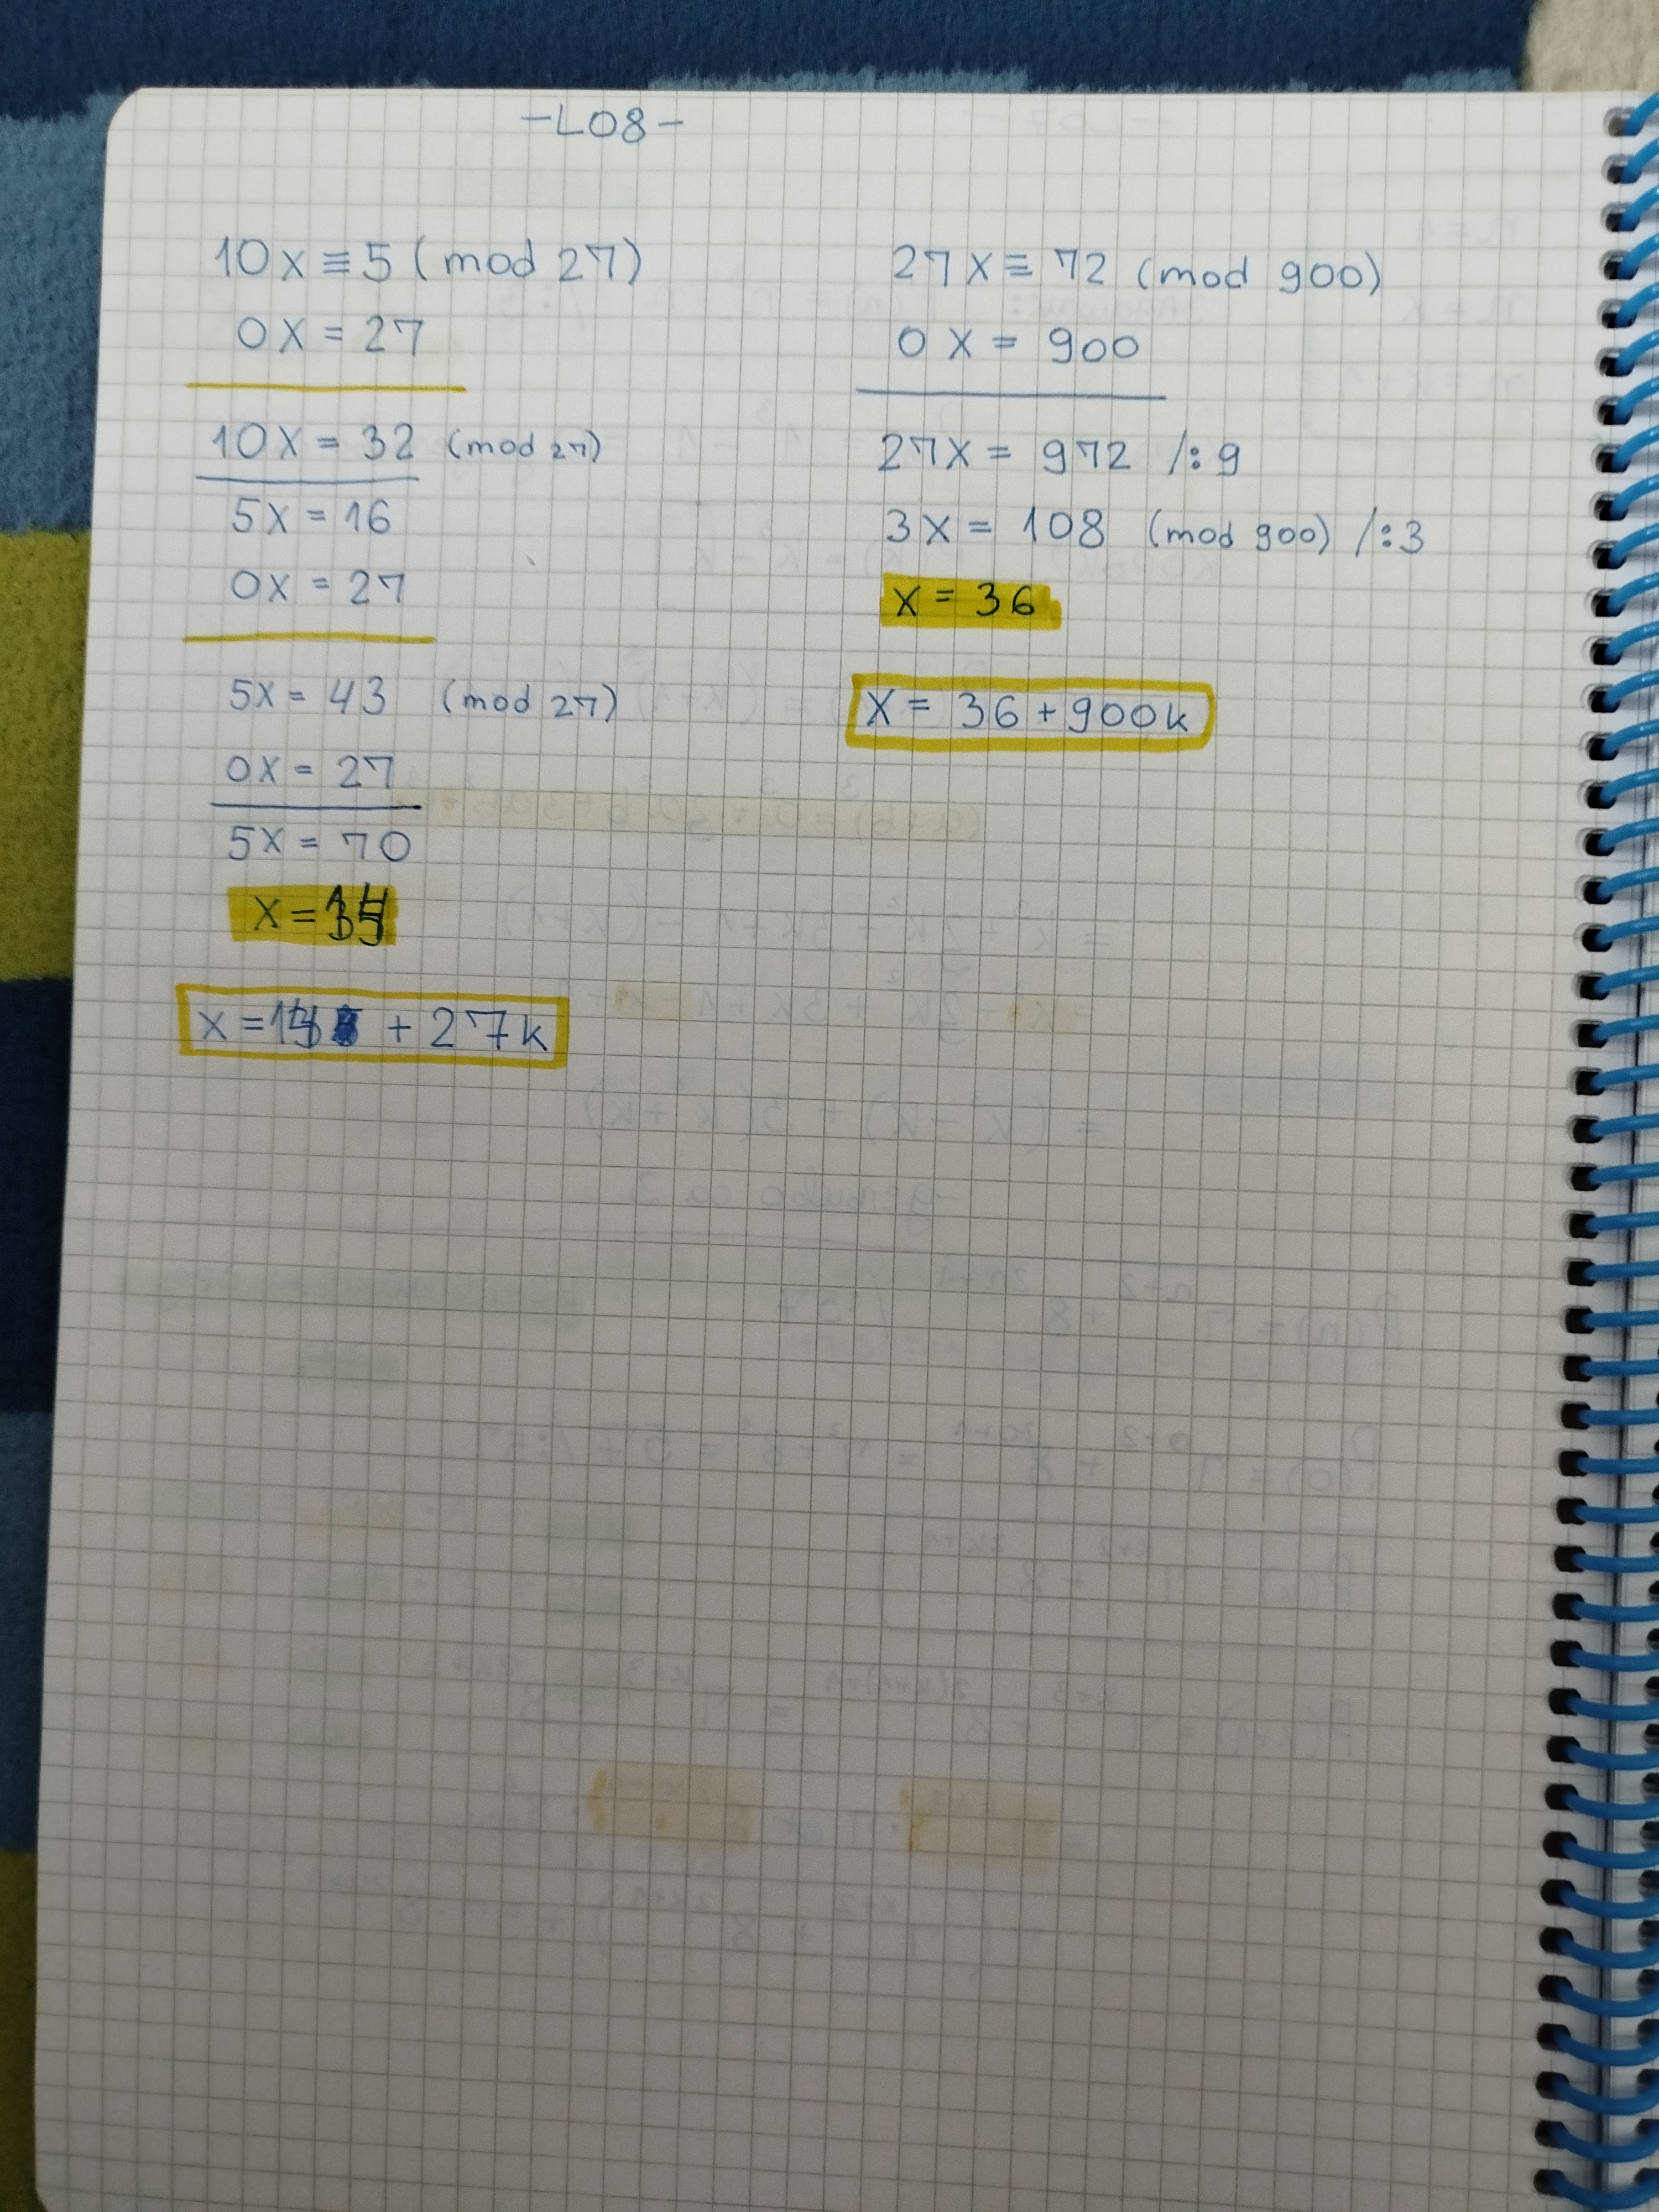 -L08-
10x ≡ 5 (mod 27)
0x = 27
10x = 32 (mod 27)
5x = 16
0x = 27
5x = 43 (mod 27)
0x = 27
5x = 70
x = 14
x = 14 + 27k
27x ≡ 72 (mod 900)
0x = 900
27x = 972 /: 9
3x = 108 (mod 900) /:3
x = 36
x = 36 + 900k